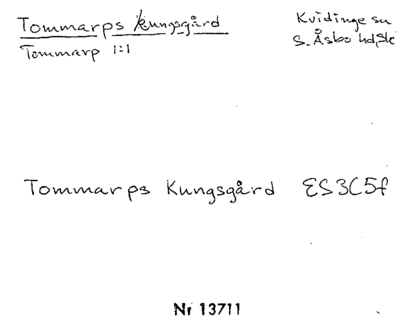 Tommarps Kungsgård
Tommarp 1:1
Kvidinge sn
S. Åsbo hd, Sk
Tommarps Kungsgård ES3C5f
Nr 13711